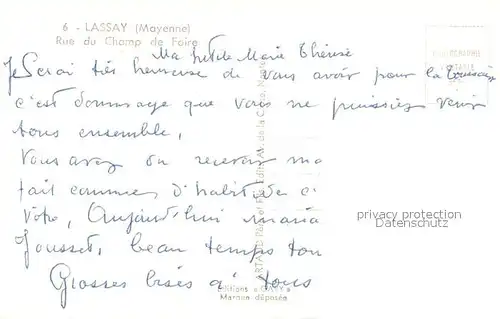 6 - LASSAY (Mayenne)
Rue du Champ de Foire
Ma petite Marie Thérèse
Je Serai très heureuse de vous avoir pour la Toussaint
c'est dommage que vous ne puissiez venir
tous ensemble,
Vous avez du recevoir ma
fait comme d'habitude
Aujourd'hui
Jousset, beau temps
Grosses bises à tous
privacy protection
Datenschutz
Editions « GABY »
Marque déposée